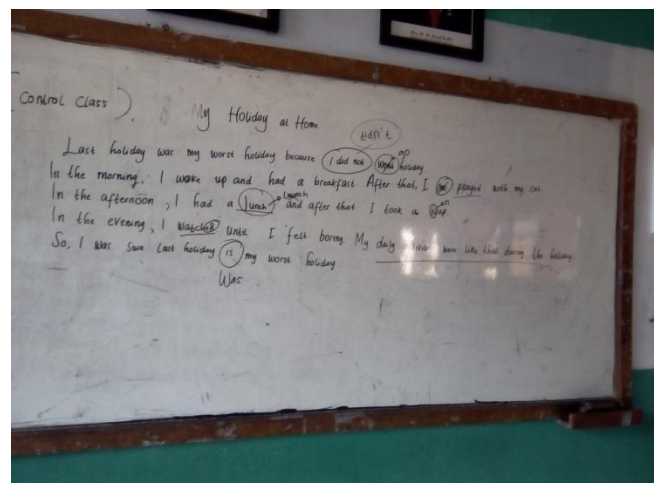 Control Class).
My Holiday at Home
didn't
Last holiday was my worst holiday because I did not go holiday
In the morning, I woke up and had a breakfast After that, I played with my cat
In the afternoon, I had a lunch and after that I took a Nap
In the evening, I watched until I felt boring. My daily were like that during the holiday.
So, I was sure last holiday is my worst holiday
Was